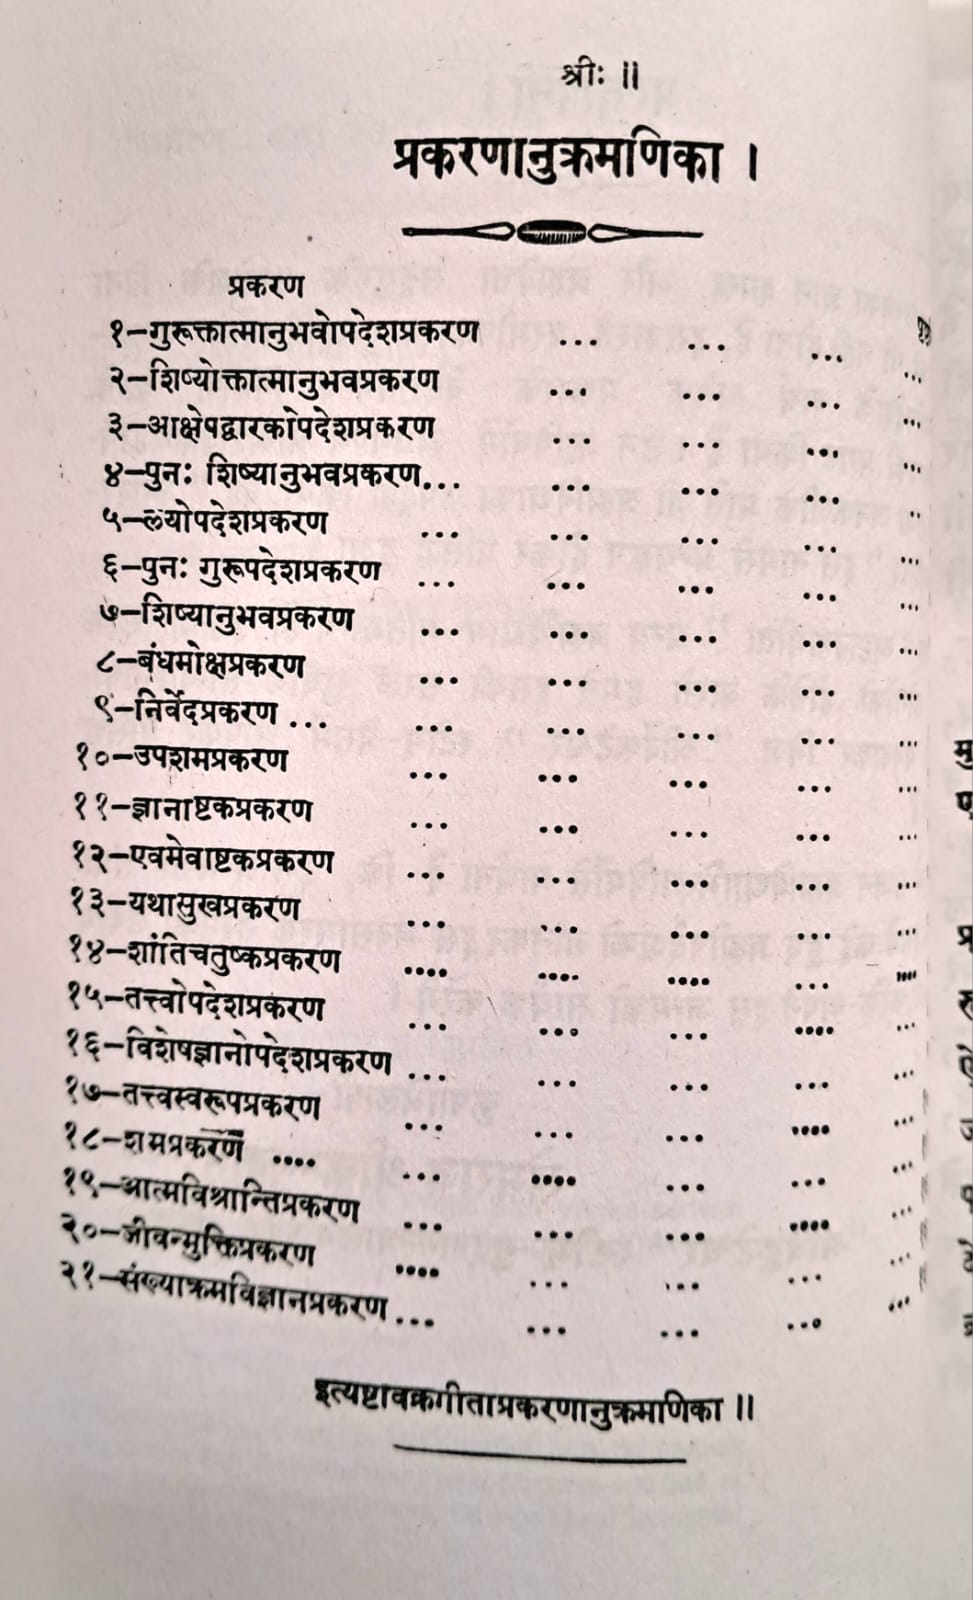 श्रीः ॥
प्रकरणानुक्रमणिका ।
प्रकरण
१–गुरूक्तात्मानुभवोपदेशप्रकरण ... ... ...
२–शिष्योक्तात्मानुभवप्रकरण ... ... ... ...
३–आक्षेपद्वारकोपदेशप्रकरण ... ... ... ...
४–पुनः शिष्यानुभवप्रकरण... ... ... ... ...
५–लयोपदेशप्रकरण ... ... ... ... ..
६–पुनः गुरूपदेशप्रकरण ... ... ... ... ...
७–शिष्यानुभवप्रकरण ... ... ... ... ...
८–बंधमोक्षप्रकरण ... ... ... ... ...
९–निर्वेदप्रकरण ... ... ... ... ... ...
१०–उपशमप्रकरण ... ... ... ... ...
११–ज्ञानाष्टकप्रकरण ... ... ... ... ...
१२–एवमेवाष्टकप्रकरण ... ... ... ... ...
१३–यथासुखप्रकरण ... ... ... ... ...
१४–शांतिचतुष्कप्रकरण .... .... .... ... ....
१५–तत्त्वोपदेशप्रकरण ... ... ... .... ...
१६–विशेषज्ञानोपदेशप्रकरण ... ... ... ... ...
१७–तत्त्वस्वरूपप्रकरण ... ... ... .... ...
१८–शमप्रकरण .... ... .... ... ... ...
१९–आत्मविश्रान्तिप्रकरण ... ... ... .... ...
२०–जीवन्मुक्तिप्रकरण .... ... ... ... ...
२१–संख्याक्रमविज्ञानप्रकरण ... ... ... ... ...
इत्यष्टावक्रगीताप्रकरणानुक्रमाणिका ॥